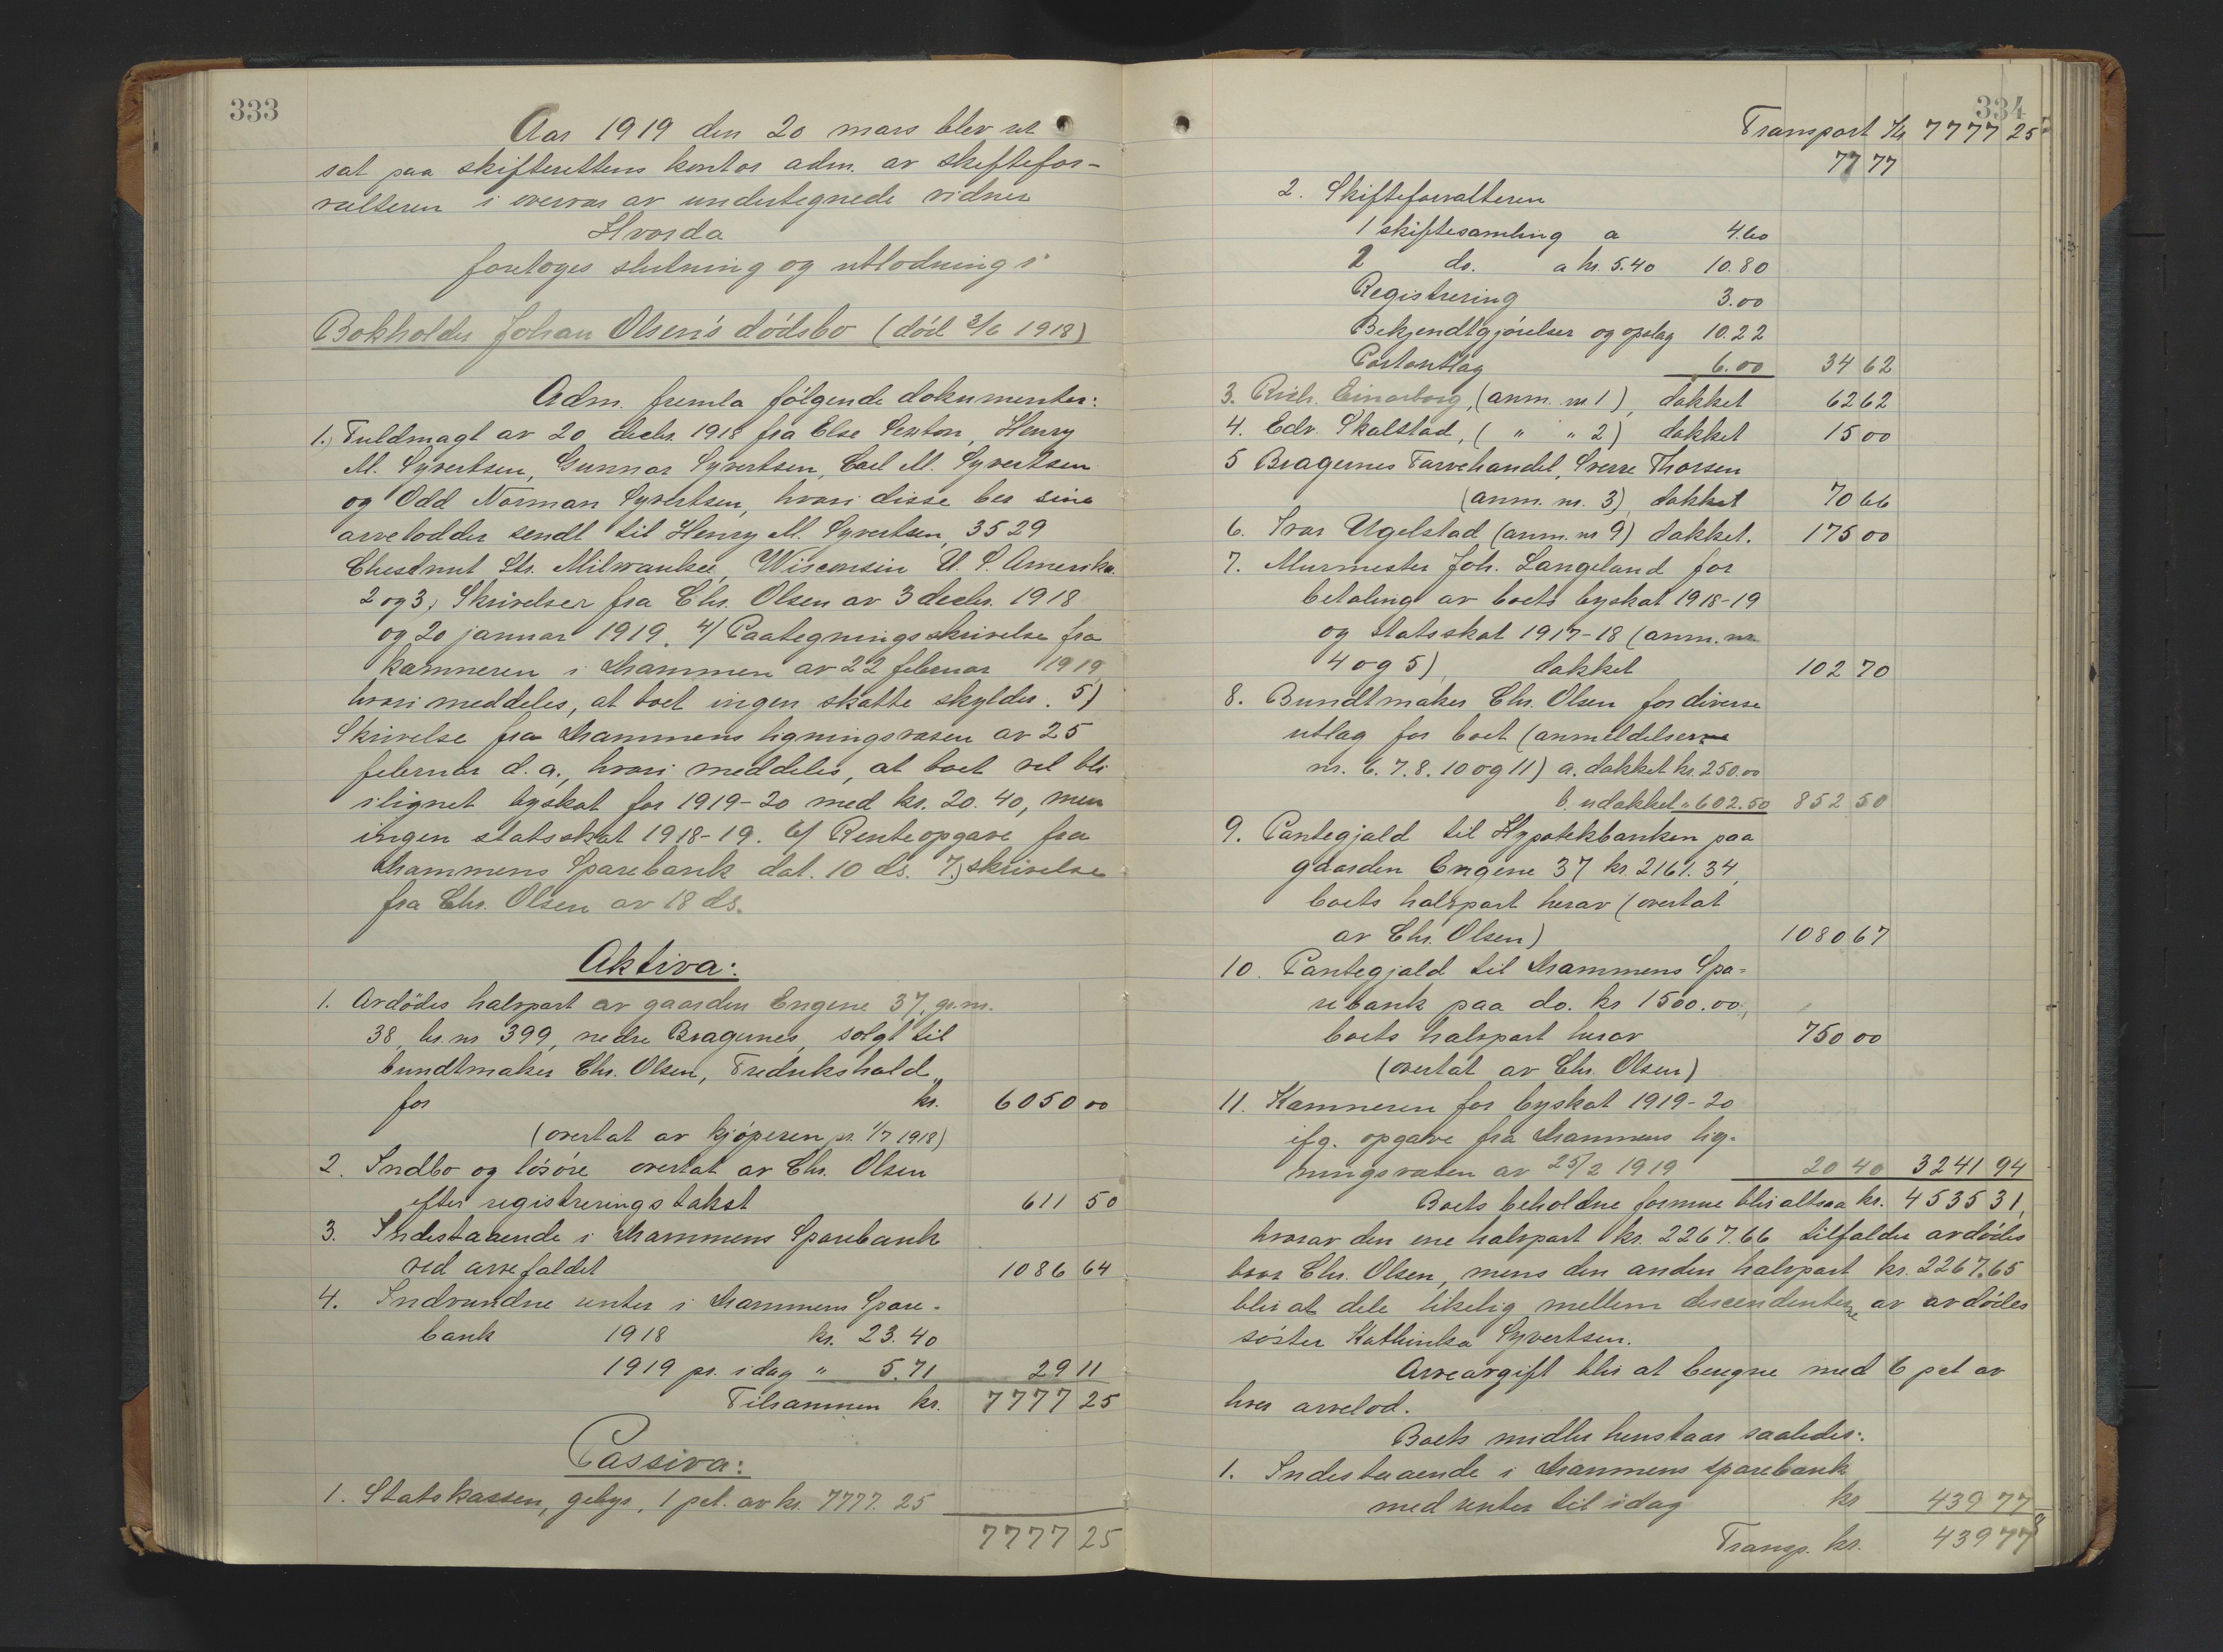 333
Aar 1919 den 20 mars blev ret
sat paa skifterettens kontor adm. av skiftefor-
valteren i overvær av undertegnede vidner
Hvorda
foretoges slutning og utlodning i
Bokholder Johan Olsen's dødsbo (død 3/6 1918)
Adm. fremla følgende dokumenter:
1.) Fuldmagt av 20 decbr. 1918 fra Else Sexton, Henry
M. Syvertsen, Gunnar Syvertsen, Carl M. Syvertsen
og Odd Norman Syvertsen, hvori disse ber sine
arvelodder sendt til Henry M. Syvertsen, 3529
Chestnut Str. Milwaukee, Wisconsin U. S. Amerika.
2 og 3, Skrivelser fra Chr. Olsen av 3 decbr. 1918
og 20 januar 1919. 4/ Paategningsskrivelse fra
kæmneren i Drammen av 22 februar 1919,
hvori meddeles, at boet ingen skatte skylder. 5)
Skrivelse fra Drammens ligningsvæsen av 25
februar d. a., hvori meddeles, at boet vil bli
ilignet byskat for 1919-20 med kr. 20.40, men
ingen statsskat 1918-19. 6/ Renteopgave fra
Drammens Sparebank dat. 10 ds. 7.) skrivelse
fra Chr. Olsen av 18 ds.
Aktiva:
1. Avdødes halvpart av gaarden Engene 37, gr.nr.
38, br. nr 399, nedre Bragernes, solgt til
bundtmaker Chr. Olsen, Fredrikshald,
for kr. 6050 00
(overtat av kjøperen pr. 1/7 1918)
2. Indbo og løsøre overtat av Chr. Olsen
efter registreringstakst 611 50
3. Indestaaende i Drammens Sparebank
ved arvefaldet 1086 64
4. Indvundne renter i Drammens Spare-
bank 1918 kr. 23.40
1919 pr. idag " 5.71 29 11
Tilsammen kr. 7777 25
Passiva:
1. Statskassen, gebyr, 1 pct. av kr. 7777.25
7777 25
334
Transport Kr 7777 25
77 77
2. Skifteforvalteren
1 skiftesamling a 4.60
2 do. a kr. 5.40 10.80
Registrering 3.00
Bekjendtgjørelser og opslag 10.22
Portoutlæg 6.00 34 62
3. Rich. Einarborg, (anm. nr 1), dækket 62 62
4. Edv. Skalstad, ( " " 2) dækket 15 00
5 Bragernes Farvehandel, Sverre Thorsen
(anm. nr. 3) dækket 70 66
6. Ivar Ugelstad (anm. nr 9) dækket. 175 00
7. Murmester Joh. Langeland for
betaling av boets byskat 1918-19
og statsskat 1917-18 (anm. nr
4 og 5), dækket 102 70
8. Bundtmaker Chr. Olsen for diverse
utlæg for boet (anmeldelserne
nr. 6. 7. 8. 10 og 11) a. dækket kr. 250.00
b. udækket " 602.50 852 50
9. Pantegjæld til Hypotekbanken paa
gaarden Engene 37 kr. 2161.34,
boets halvpart herav (overtat
av Chr. Olsen) 1080 67
10. Pantegjæld til Drammens Spa-
rebank paa do. kr 1500.00,
boets halvpart herav 750 00
(overtat av Chr. Olsen)
11. Kæmneren for byskat 1919-20
ifg. opgave fra Drammens lig-
ningsvæsen av 25/2 1919 20 40 3241 94
Boets beholdne formue blir altsaa kr. 4535 31,
hvorav den ene halvpart kr. 2267.66 tilfalder avdødes
bror Chr. Olsen, mens den anden halvpart kr. 2267.65
blir at dele likelig mellem descendenterne av avdødes
søster Kathinka Syvertsen.
Arveavgift blir at beregne med 6 pct av
hver arvelod.
Boets midler henstaar saaledes:
1. Indestaaende i Drammens sparebank
med renter til idag kr 439 77
Transp. kr. 439 77